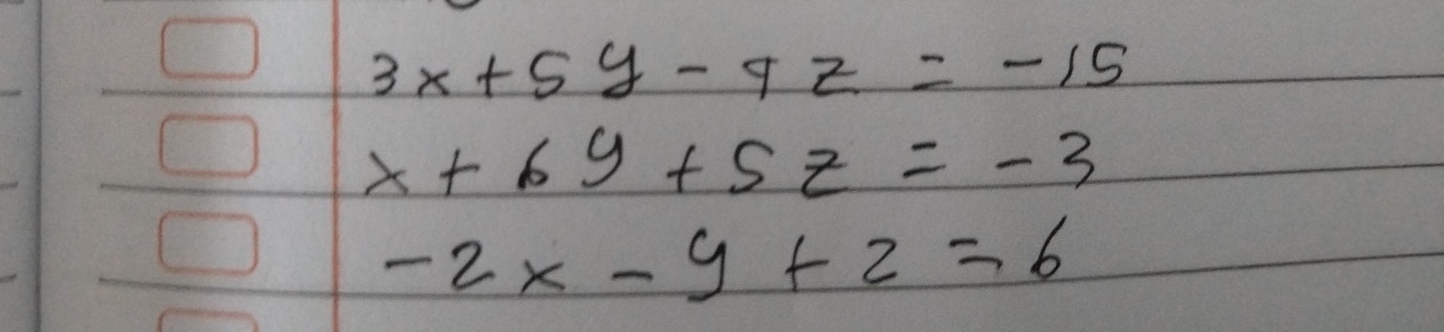 3x + 5y - 9z = -15
x + 6y + 5z = -3
-2x - y + z = 6